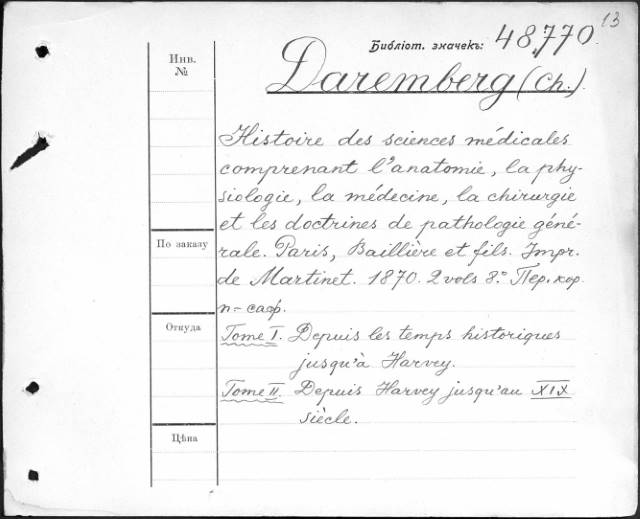 13
Библіот. значекъ: 48,770.
Инв.
№
Daremberg (Ch.).
Histoire des sciences médicales
comprenant l'anatomie, la phy-
siologie, la médecine, la chirurgie
et les doctrines de pathologie géné-
По заказу
rale. Paris, Baillière et fils. Impr.
de Martinet. 1870. 2 vols 8.° Пер. кор.
п-саф.
Откуда
Tome I. Depuis les temps historiques
jusqu'à Harvey.
Tome II. Depuis Harvey jusqu'au XIX
siècle.
Цѣна